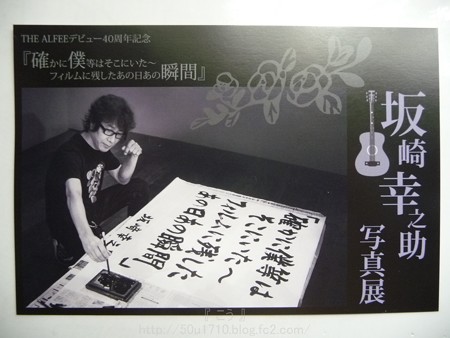 THE ALFEEデビュー40周年記念
『確かに僕等はそこにいた～
フィルムに残したあの日あの瞬間』
坂崎幸之助
写真展
『確かに僕等は
そこにいた～
フィルムに残した
あの日あの瞬間』
坂崎幸之助
『こう』
http://50u1710.blog.fc2.com/